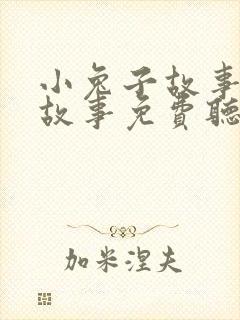 小兔子故事
故事免費聽
加米涅夫